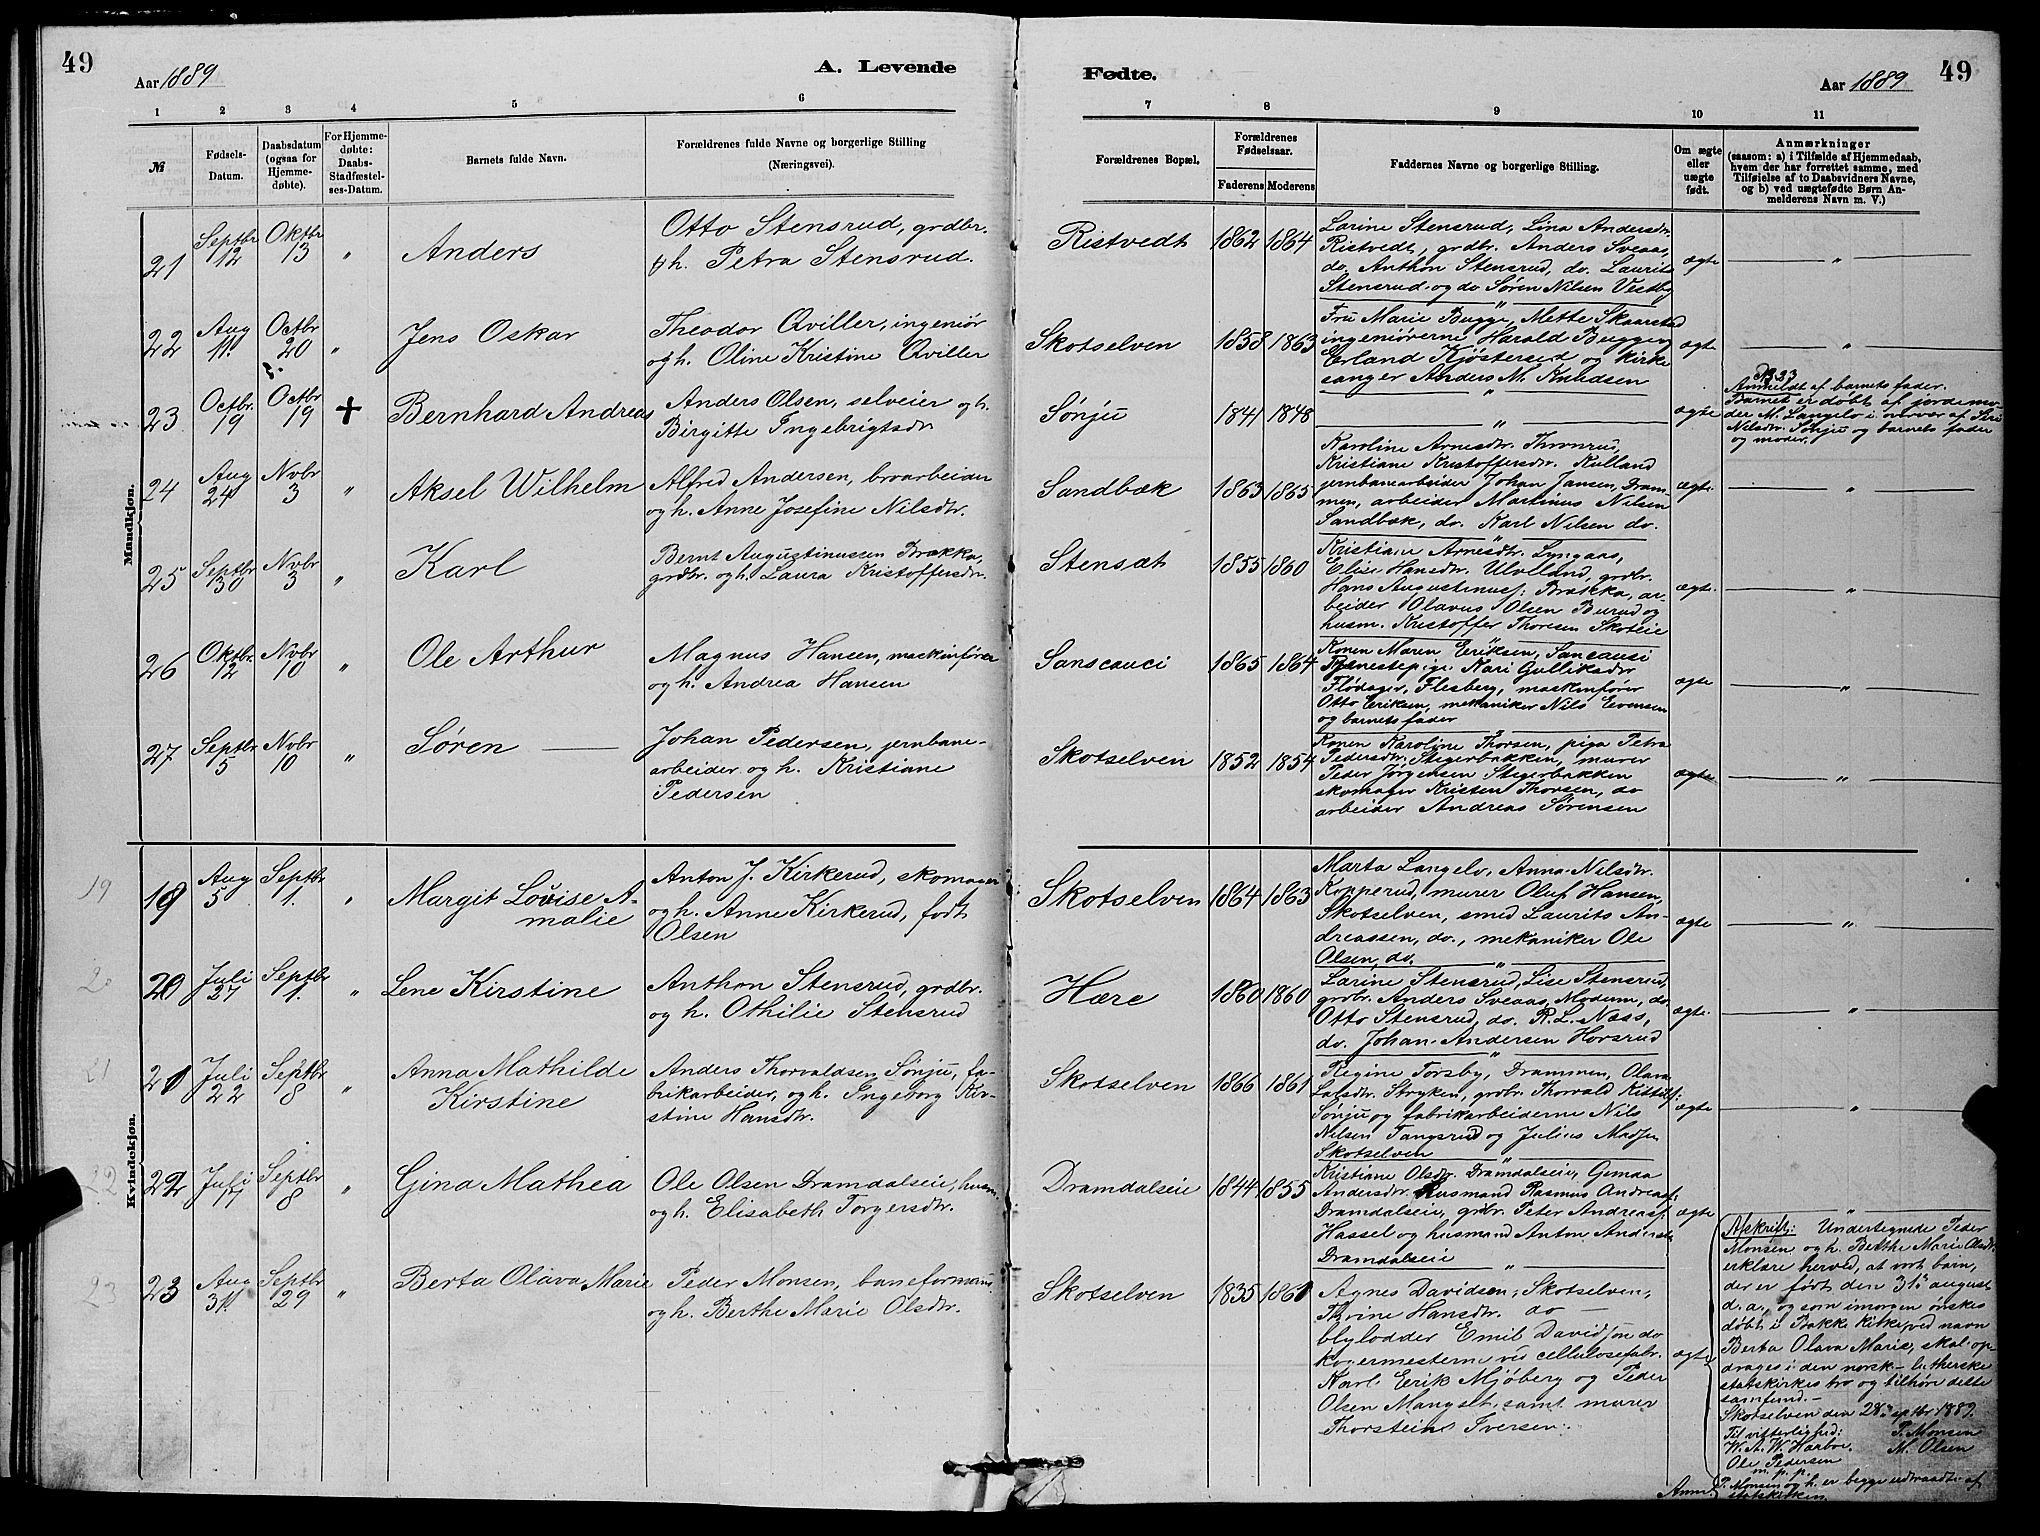 49
Aar 1889
A. Levende
1 2 3 4 5 6
№
Fødsels-Datum.
Daabsdatum (ogsaa for Hjemme-døbte).
For Hjemme-døbte: Daabs-Stadfæstel-ses-Datum.
Barnets fulde Navn.
Forældrenes fulde Navne og borgerlige Stilling
(Næringsvei).
Mandkjøn.
21 Septbr 12 Oktbr 13 " Anders
Otto Stensrud, grdbr.
& h. Petra Stensrud.
22 Aug 11. Octbr 20 " Jens Oskar
Theodor Qviller, ingeniør
og h. Oline Kristine Qviller
23 Octbr. 19 Octbr 19 + Bernhard Andreas
Anders Olsen, selveier og h.
Birgitte Ingebrigtsdr
24 Aug 24 Nvbr 3 " Aksel Wilhelm
Alfred Andersen, broarbeider
og h. Anne Josefine Nilsdtr.
25 Septbr 30 Nvbr 3 " Karl
Bernt Augustinussen Brækka,
grdbr. og h. Laura Kristoffersdr.
26 Oktbr. 12 Nvbr 10 " Ole Arthur
Magnus Hansen, maskinfører
og h. Andrea Hansen
27 Septbr 5 Nvbr 10 " Søren
Johan Pedersen, jernbane-
arbeider og h. Kristiane
Pedersen
Kvindekjøn.
19 19 Aug 5 Septbr 1. " Margit Lovise A-
malie
Anton J. Kirkerud, skomager
og h. Anne Kirkerud, født
Olsen
20 20 Juli 27 Septbr 1. " Lene Kirstine
Anthon Stensrud, grdbr.
og h. Othilie Stensrud
21 21 Juli 22 Septbr 8 " Anna Mathilde
Kirstine
Anders Thorvaldsen Sønju, fa-
brikarbeider, og h. Ingeborg Kir-
stine Hansdtr.
22 22 Juli 17 Septbr 8 " Gina Mathea
Ole Olsen Dramdalseie, husm.
og h. Elisabeth Torgersdtr.
23 23 Aug 31. Septbr 29 " Berta Olava Marie
Peder Monsen, baneformand
og h. Berthe Marie Olsdtr.
Fødte.
Aar 1889
49
7 8 9 10 11
Forældrenes Bopæl.
Forældrenes Fødselsaar.
Faderens Moderens
Faddernes Navne og borgerlige Stilling.
Om ægte eller uægte født.
Anmærkninger
(saasom: a) i Tilfælde af Hjemmedaab,
hvem der har forrettet samme, med
Tilføielse af to Daabsvidners Navne,
og b) ved uægtefødte Børn An-
melderens Navn m. V.)
Ristvedt 1862 1864
Larine Stensrud, Lina Andersdr.
Ristvedt, grdbr. Anders Sveaas,
do. Anthon Stensrud, do. Laurits
Stensrud og do Søren Nilsen Vestby
ægte "
Skotselven 1858 1863
Fru Marie Bugge, Mette Skaarstad
ingeniørerne Harald Bugge og
Erland Kjøstersed og kirke
sanger Anders M. Knudsen
ægte "
Sønju 1841 1848 "
ægte
Anmeldt af barnets fader.
Barnet er døbt af jordemo-
der M. Langelo i nærvær af Siri
Nilsdr. Sønju og barnets fader
og moder.
Sandbæk 1863 1865
Karoline Arnesdtr. Thronrud,
Kristiane Kristoffersdtr. Kulland
jernbanearbeider Johan Jansen, Dram-
men, arbeider Martinus Nilsen
Sandbæk, do. Karl Nilsen do.
ægte "
Stensæt 1855 1860
Kristiane Arnesdtr. Lyngaas,
Elise Hansdtr. Ulvlland, grdbr.
Hans Augustinus: Brækka, ar-
beider Olavus Olsen Burud og
husm. Kristoffer Thoresen Skoteie
ægte. "
Sanscauci 1865 1864
Konen Maren Eriksen, Sancausi
Tjenestepige Kari Gulliksdr
Flødager, Flesberg, maskinfører
Otto Eriksen, mekaniker Nils Evensen
og barnets fader
ægte "
Skotselven 1852 1854
Konen Karoline Thorsen, piga Petra
Pedersdtr. Stigerbakken, murer
Peder Jørgensen Stigerbakken
skomager Kristen Thorsen, do
arbeider Andreas Sørensen
ægte "
Skotselven 1864 1863
Marta Langelo, Anna Nilsdtr.
Kopperud, murer Oluf Hansen,
Skotselven, smed Laurits An-
dreassen, do., mekaniker Ole
Olsen, do.
ægte "
Hære 1860 1860
Larine Stensrud, Lise Stensrud,
grdbr. Anders Sveaas, Modum, do.
Otto Stensrud, do. R. L. Næss,
do. Johan Andersen Horsrud
ægte. "
Skotselven 1866 1861
Regine Torsby, Drammen, Olava
Larsdtr. Stryken, grdbr. Thorvald Kittils:
Sønju og fabrikarbeiderne Nils
Nilsen Tangsrud og Julius Madsen
Skotselven
ægte "
Dramdalseie 1844 1855
Kristiane Olsdtr. Dramdalseie, Gunda
Andersdtr. Husmand Rasmus Andreas:
Dramdalseie, grdbr. Peter Andreas:
Hassel og husmand Anton Andersen
Dramdalseie
ægte "
Skotselven 1835 1860
Agnes Davidsen, Skotselven,
Thrine Hansdtr. do
blylodder Emil Davidsen do
kogermesterne ved cellulosefabr.
Karl Erik Mjøberg og Peder
Olsen Mangelt. samt murer
Thorstein Iversen.
ægte
Afskrift: Undertegnede Peder
Monsen og h. Berthe Marie Olsdtr.
erklære herved, at vort barn,
der er født den 31. august
d. a., og som imorgen ønskes
døbt i Bakke kirke ved navn
Berta Olava Marie, skal op-
drages i den norsk-lutherske
statskirkes tro og tilhøre dette
samfund.-
Skotselven den 28. sptbr. 1889.
Til vitterlighed: P. Monsen
W. A. W. Harboe. M. Olsen
Ole Pedersen
m. p. p.
Anm. P. Monsen og h. er begge udtraadte af
statskirken.